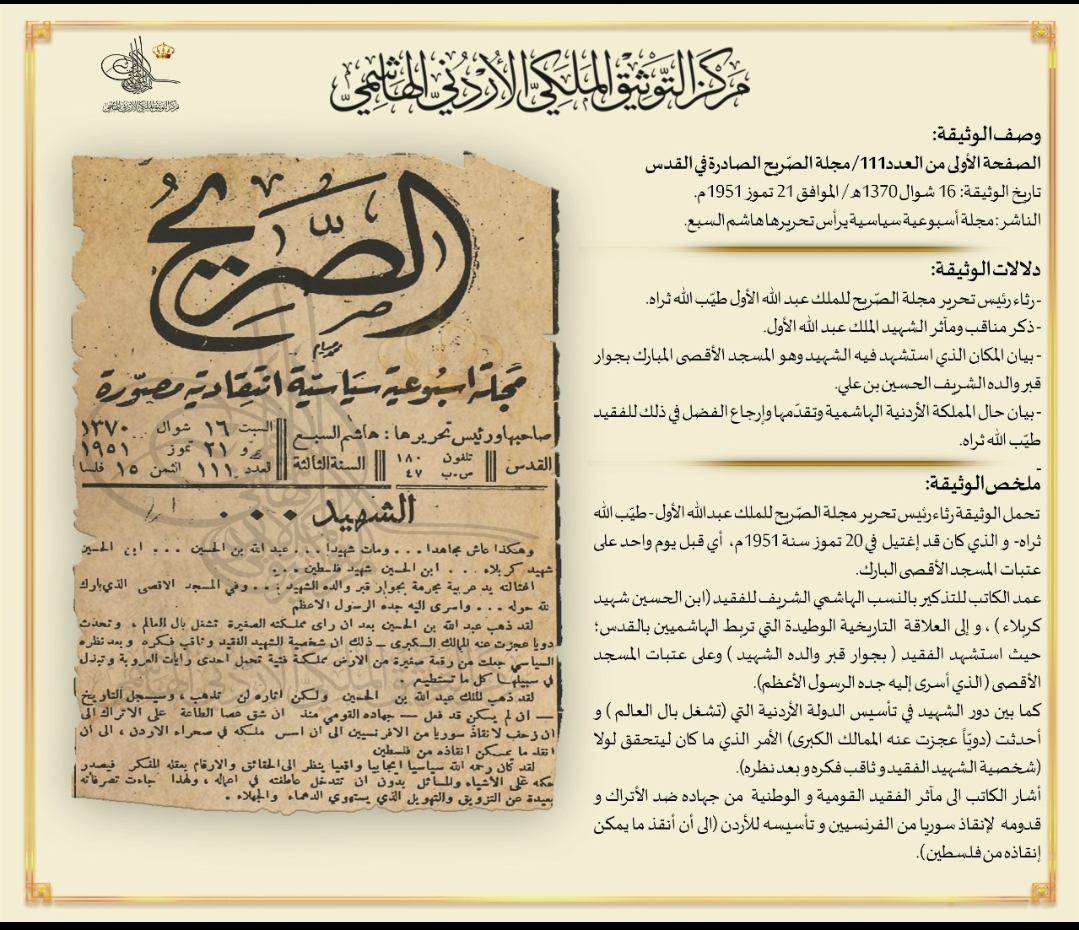 مركز التوثيق الملكي الأردني الهاشمي
مركز التوثيق الملكي الأردني الهاشمي
وصف الوثيقة:
الصفحة الأولى من العدد111/ مجلة الصّريح الصادرة في القدس
تاريخ الوثيقة: 16 شوال 1370هـ / الموافق 21 تموز 1951م.
الناشر: مجلة أسبوعية سياسية يرأس تحريرها هاشم السبع.
دلالات الوثيقة:
-رثاء رئيس تحرير مجلة الصّريح للملك عبد الله الأول طيّب الله ثراه.
-ذكر مناقب ومآثر الشهيد الملك عبد الله الأول.
- بيان المكان الذي استشهد فيه الشهيد وهو المسجد الأقصى المبارك بجوار
قبر والده الشريف الحسين بن علي.
-بيان حال المملكة الأردنية الهاشمية وتقدّمها وإرجاع الفضل في ذلك للفقيد
طيّب الله ثراه.
-
ملخص الوثيقة:
تحمل الوثيقة رثاء رئيس تحرير مجلة الصّريح للملك عبدالله الأول - طيّب الله
ثراه- و الذي كان قد إغتيل في 20 تموز سنة 1951م، أي قبل يوم واحد على
عتبات المسجد الأقصى البارك.
عمد الكاتب للتذكير بالنسب الهاشمي الشريف للفقيد (ابن الحسين شهيد
كربلاء ) ، و إلى العلاقة التاريخية الوطيدة التي تربط الهاشميين بالقدس؛
حيث استشهد الفقيد ( بجوار قبر والده الشهيد ) وعلى عتبات المسجد
الأقصى ( الذي أسرى إليه جده الرسول الأعظم).
كما بين دور الشهيد في تأسيس الدولة الأردنية التي (تشغل بال العالم ) و
أحدثت (دويّاً عجزت عنه الممالك الكبرى) الأمر الذي ما كان ليتحقق لولا
(شخصية الشهيد الفقيد و ثاقب فكره و بعد نظره).
أشار الكاتب الى مآثر الفقيد القومية و الوطنية من جهاده ضد الأتراك و
قدومه لإنقاذ سوريا من الفرنسيين و تأسيسه للأردن (الى أن أنقذ ما يمكن
إنقاذه من فلسطين).
الصّريح
مجلة اسبوعية سياسية انتقادية مصوّرة
صاحبها ورئيس تحريرها : هاشم السبع
القدس تلفون ١٨٠ ص.ب ٤٧ السنة الثالثة
السبت ١٦ شوال ١٣٧٠
و ٢١ تموز ١٩٥١
العدد ١١١ الثمن ١٥ فلسا
الشهيد . . .
وهكذا عاش مجاهدا ... ومات شهيدا ... عبد الله بن الحسين ... ابن الحسين
شهيد كربلاء ... ابن الحسين شهيد فلسطين ...
اغتالته يد عربية مجرمة بجوار قبر والده الشهيد ... وفي المسجد الاقصى الذي بارك
الله حوله ... واسرى اليه جده الرسول الاعظم
لقد ذهب عبد الله بن الحسين بعد ان راى مملكته الصغيرة تشغل بال العالم ، وتحدث
دويا عجزت عنه الممالك الكبرى ـ ذلك ان شخصية الشهيد الفقيد وثاقب فكره وبعد نظره
السياسي جعلت من رقعة صغيرة من الارض مملكة فتية تحمل احدى رايات العروبة وتبذل
في سبيلها كل ما تستطيع .
لقد ذهب الملك عبد الله بن الحسين ولكن اثاره لن تذهب ، وسيسجل التاريخ
— ان لم يسكن قد فعل — جهاده القومي منذ ان شق عصا الطاعة على الاتراك الى
ان زحف لانقاذ سوريا من الافرنسيين الى ان اسس ملكه في صحراء الاردن ، الى أن
انقذ ما يمكن انقاذه من فلسطين
لقد كان رحمه الله سياسيا ايجابيا واقعيا ينظر الى الحقائق والارقام بعقله المفكر فيصدر
حكه على الأشياء والمسائل بدون ان تتدخل عاطفته في اعماله ، ولهذا جاءت تصرفاته
بعيدة عن التزويق والتهويل الذي يستهوي الدهماء والجهلاء .